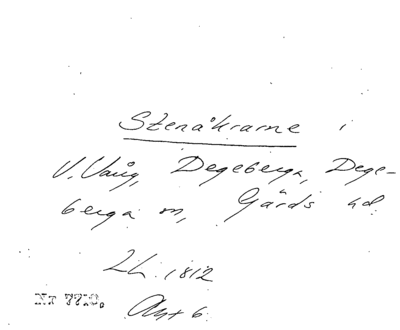 Stenåkrarne i
V. Vång, Degeberga, Dege-
berga sn, Gärds hd
L.L. 1812
Akt 6.
Nr 7710.